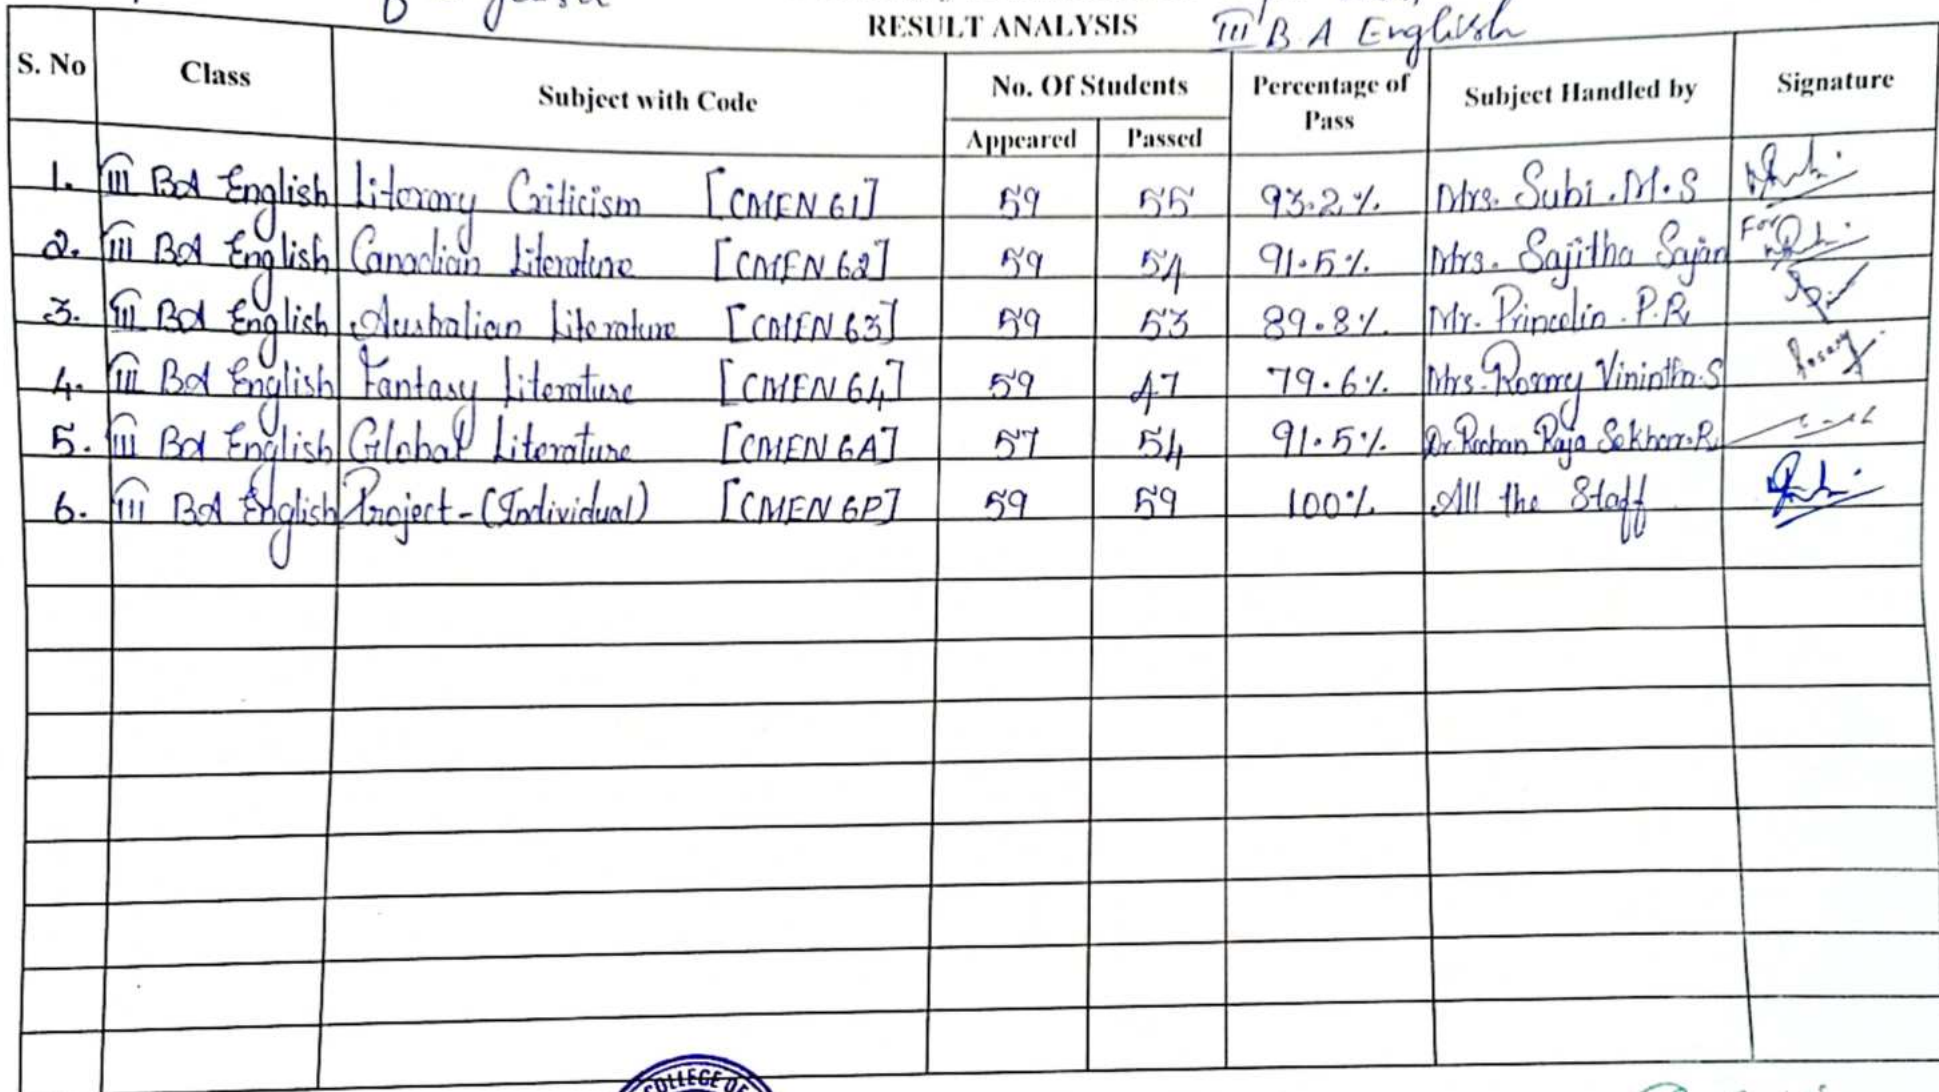 RESULT ANALYSIS III B A English
S. No Class Subject with Code No. Of Students Percentage of Pass Subject Handled by Signature
Appeared Passed
1. III BA English Literary Criticism [CMEN 61] 59 55 93.2% Mrs. Subi . M.S
2. III BA English Canadian Literature [CMEN 62] 59 54 91.5% Mrs. Sajitha Sajan For
3. III BA English Australian Literature [CMEN 63] 59 53 89.8% Mr. Princelin . P.R
4. III BA English Fantasy Literature [CMEN 64] 59 47 79.6% Mrs. Rosary Vinintha.S Rosary
5. III BA English Global Literature [CMEN 6A] 57 54 91.5% Dr. Raja Sekhar.R
6. III BA English Project - (Individual) [CMEN 6P] 59 59 100% All the Staff
COLLEGE OF